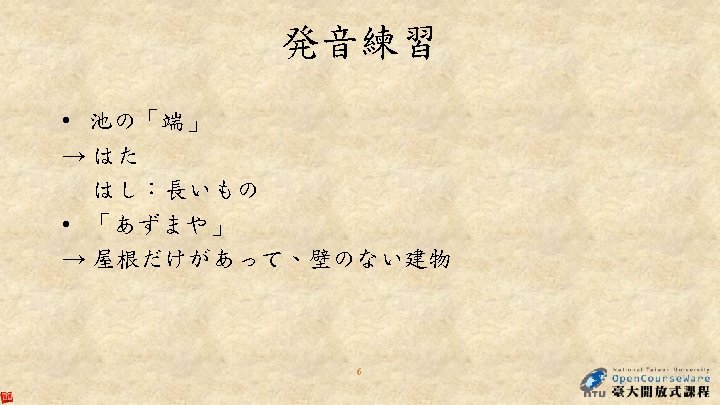 発音練習
• 池の「端」
→ はた
はし：長いもの
• 「あずまや」
→ 屋根だけがあって、壁のない建物
6
National Taiwan University
OpenCourseWare
NTU 臺大開放式課程